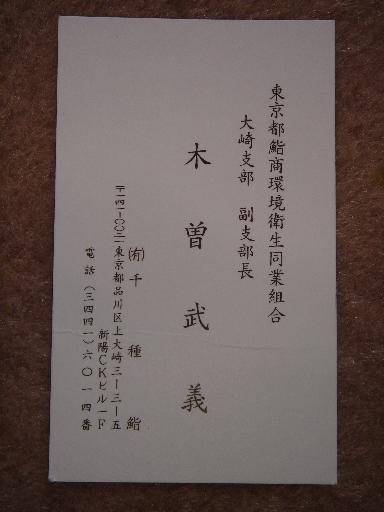 東京都鮨商環境衛生同業組合
大崎支部 副支部長
木曽武義
㈲千種鮨
〒一四一-〇〇二一東京都品川区上大崎三ー三ー五
新陽CKビル一F
電話(三四四一)六〇一四番